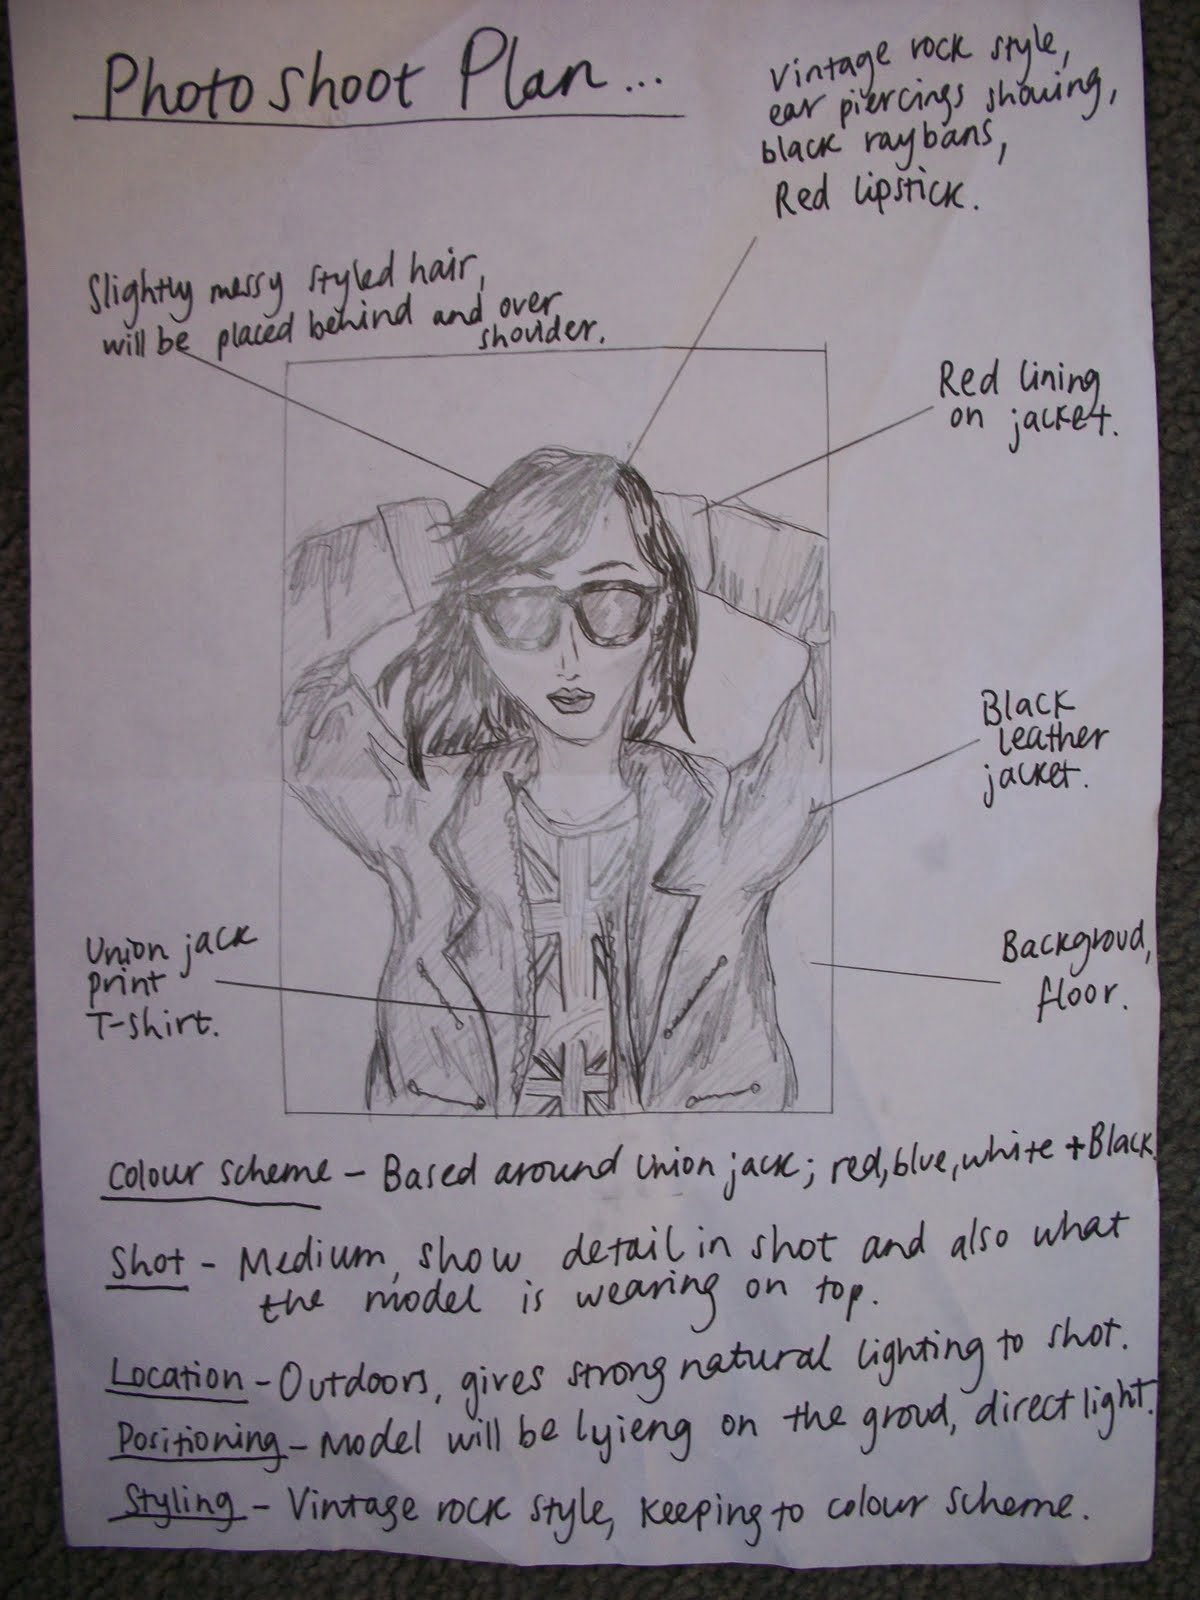 Photoshoot Plan...
Vintage rock style,
ear piercings showing,
black raybans,
Red lipstick.
Slightly messy styled hair,
will be placed behind and over
shoulder.
Red lining
on jacket.
Black
leather
jacket.
Union jack
print
T-shirt.
Backgroud,
floor.
Colour scheme - Based around Union jack; red, blue, white + Black.
Shot - Medium, show detail in shot and also what
the model is wearing on top.
Location - Outdoors, gives strong natural lighting to shot.
Positioning - Model will be lyieng on the groud, direct light.
Styling - Vintage rock style, keeping to colour scheme.